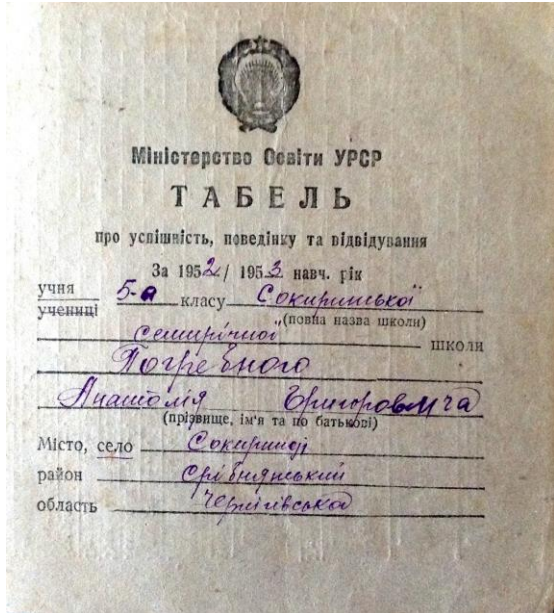 Міністерство Освіти УРСР
ТАБЕЛЬ
про успішність, поведінку та відвідування
За 1952/1953 навч. рік
учня
учениці
5-а класу Сокиринської
(повна назва школи)
семирічної школи
Погрібного
Анатолія Григоровича
(прізвище, ім'я та по батькові)
Місто, село Сокиринці
район Срібнянський
область Чернігівська